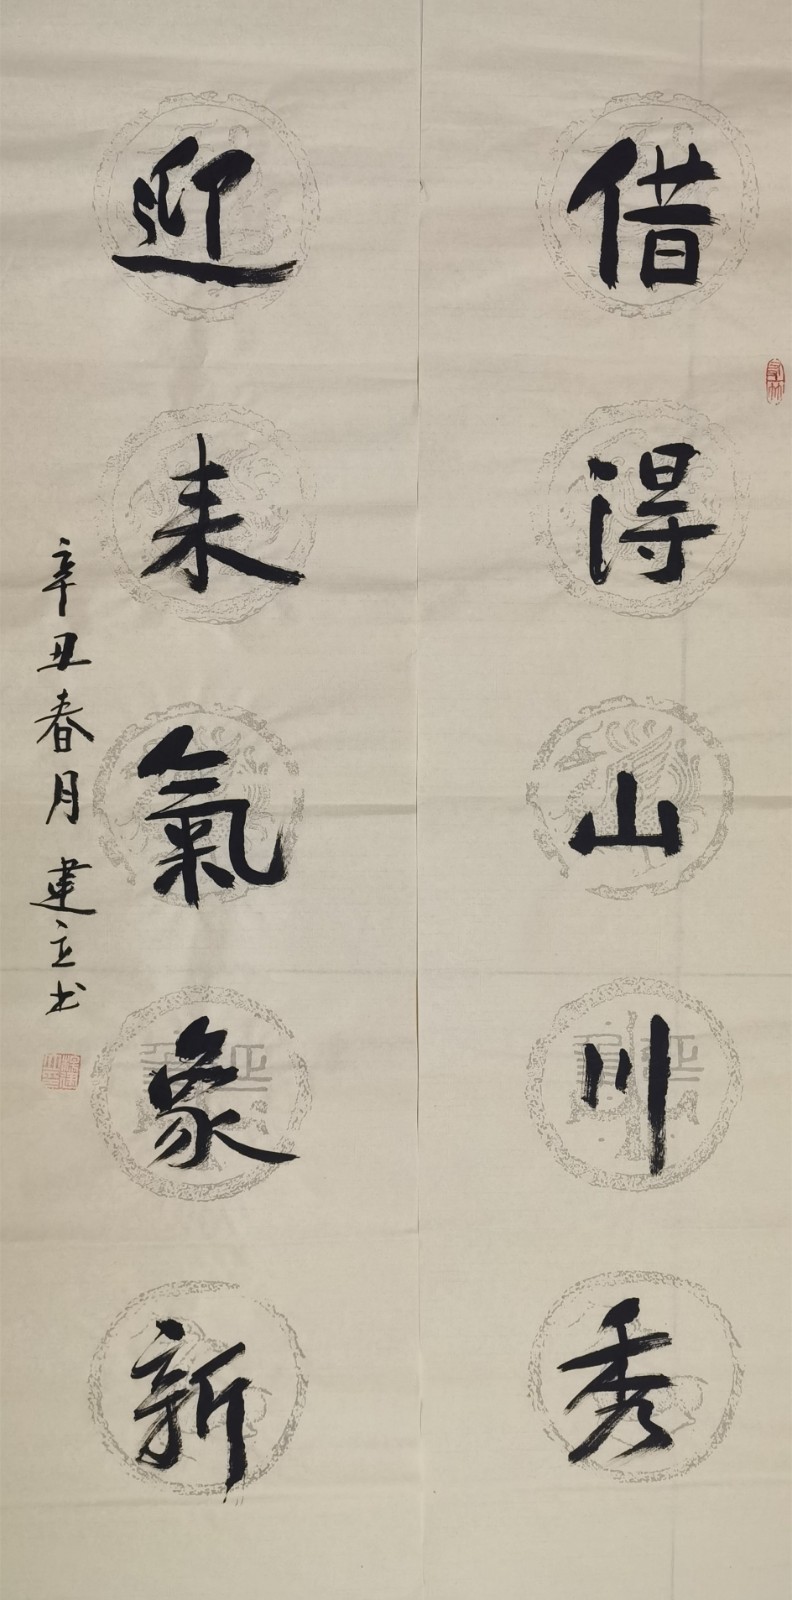 借得山川秀
迎来氣象新
辛丑春月建立书